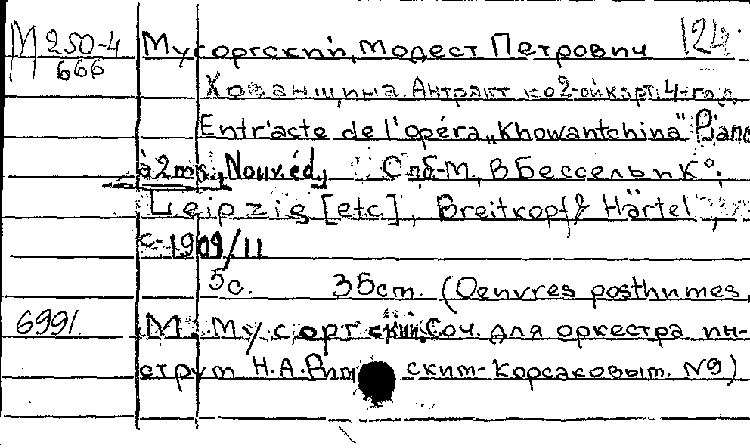 М 250-4 Мусоргский, Модест Петрович 124.
666
Хованщина. Антракт ко 2-ой карт. 4-го д.
Entr'acte de l'opéra „Khowantchina" Piano
à 2 ms., Nouv. éd., Спб-М, В Бессель и К°;
Leipzig [etc], Breitkopf & Härtel,
c-1909/11
5 с. 35cm. (Oenvres posthumes,
6991 М. Мусоргский. Соч. для оркестра ин-
струм Н.А.Рим ским-Корсаковым. №9)